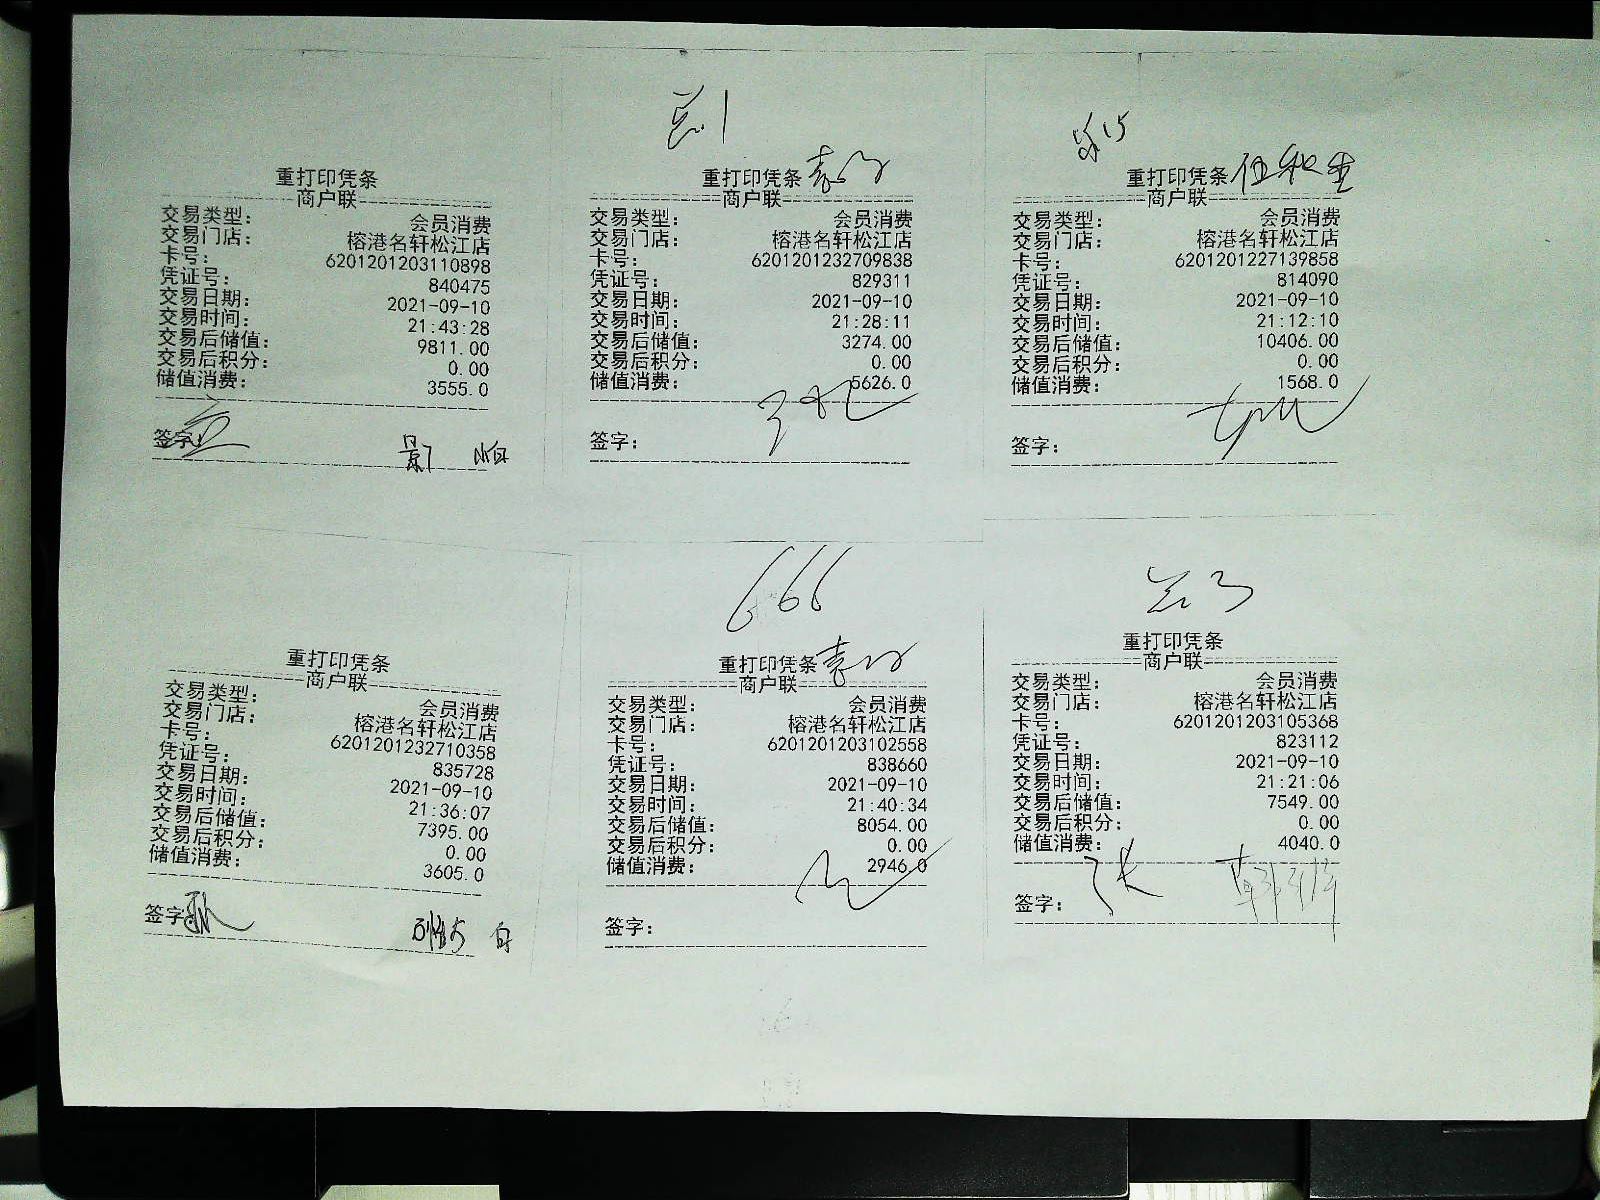 重打印凭条
商户联
交易类型: 会员消费
交易门店: 榕港名轩松江店
卡号: 6201201203110898
凭证号: 840475
交易日期: 2021-09-10
交易时间: 21:43:28
交易后储值: 9811.00
交易后积分: 0.00
储值消费: 3555.0
签字:
重打印凭条
商户联
交易类型: 会员消费
交易门店: 榕港名轩松江店
卡号: 6201201232709838
凭证号: 829311
交易日期: 2021-09-10
交易时间: 21:28:11
交易后储值: 3274.00
交易后积分: 0.00
储值消费: 5626.0
签字:
重打印凭条
商户联
交易类型: 会员消费
交易门店: 榕港名轩松江店
卡号: 6201201227139858
凭证号: 814090
交易日期: 2021-09-10
交易时间: 21:12:10
交易后储值: 10406.00
交易后积分: 0.00
储值消费: 1568.0
签字:
重打印凭条
商户联
交易类型: 会员消费
交易门店: 榕港名轩松江店
卡号: 6201201232710358
凭证号: 835728
交易日期: 2021-09-10
交易时间: 21:36:07
交易后储值: 7395.00
交易后积分: 0.00
储值消费: 3605.0
签字:
666
重打印凭条
商户联
交易类型: 会员消费
交易门店: 榕港名轩松江店
卡号: 6201201203102558
凭证号: 838660
交易日期: 2021-09-10
交易时间: 21:40:34
交易后储值: 8054.00
交易后积分: 0.00
储值消费: 2946.0
签字:
重打印凭条
商户联
交易类型: 会员消费
交易门店: 榕港名轩松江店
卡号: 6201201203105368
凭证号: 823112
交易日期: 2021-09-10
交易时间: 21:21:06
交易后储值: 7549.00
交易后积分: 0.00
储值消费: 4040.0
签字: